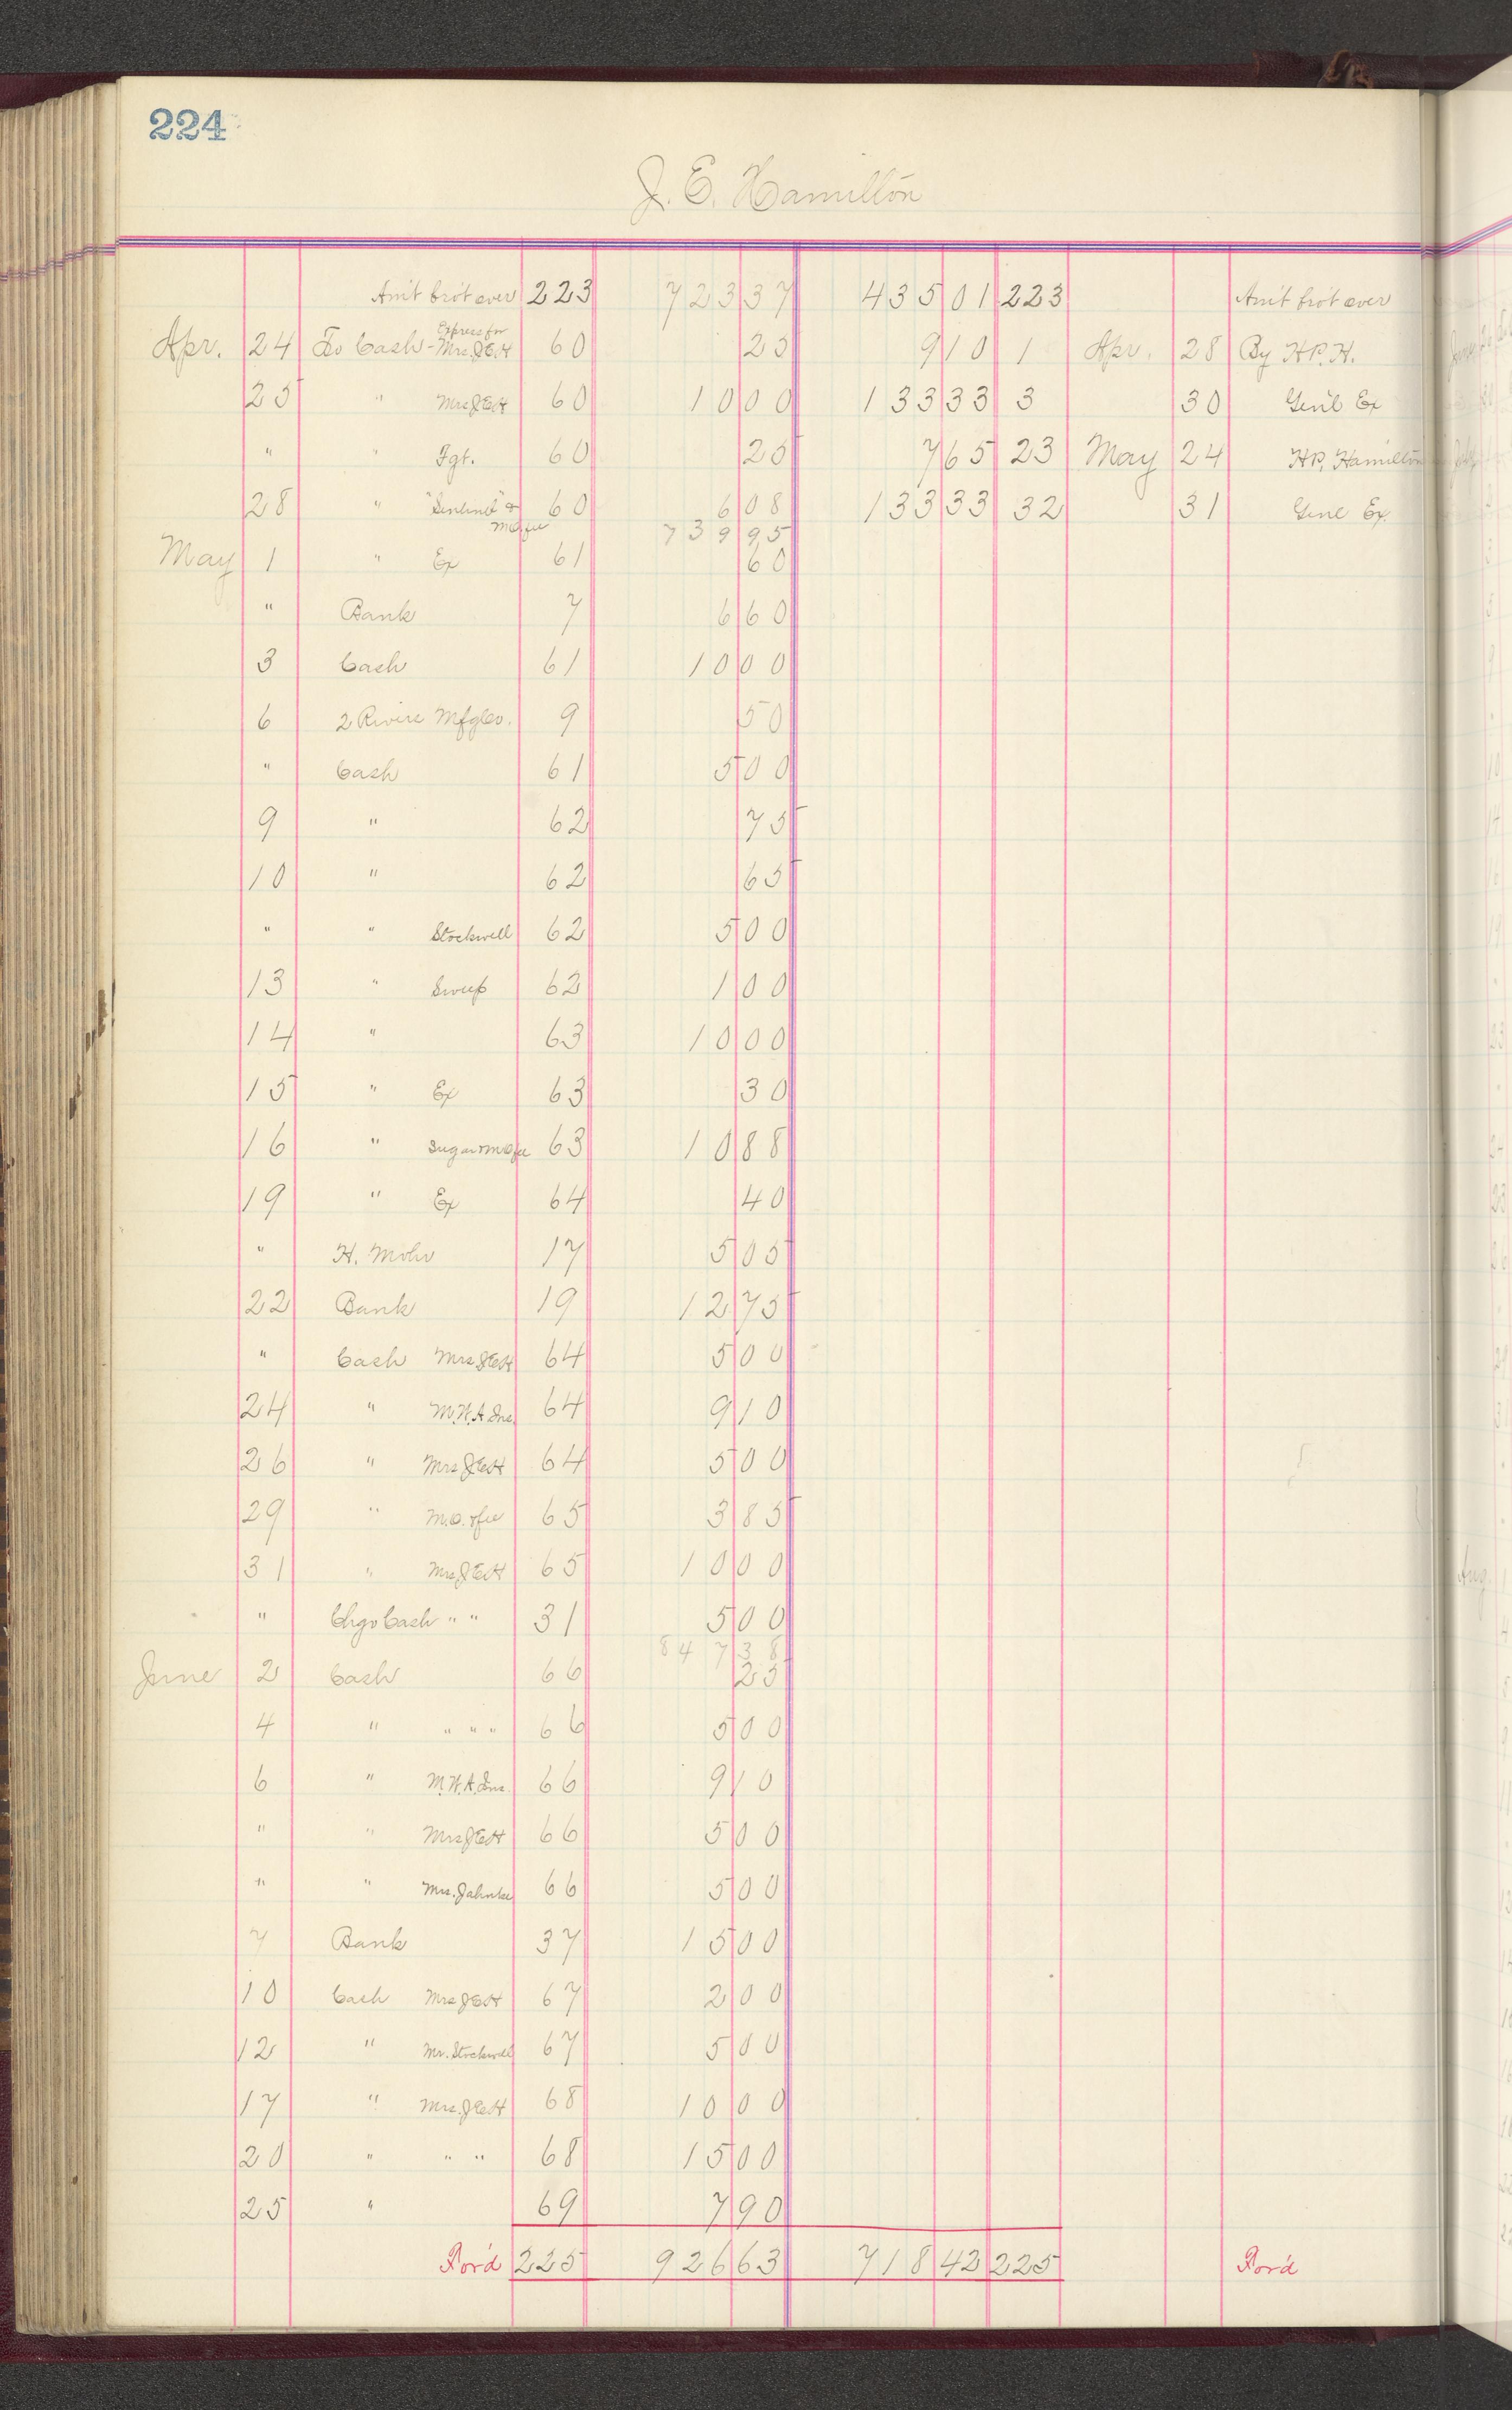 224
J. E. Hamilton
Am't bro't over 223 723 37 435 01 223 Am't bro't over
Express for
Apr. 24 To Cash - Mrs. JEH 60 25 9 10 1 Apr. 28 By H.P.H.
25 " Mrs JEH 60 10 00 133 33 3 30 Gen'l Ex
" " Fgt. 60 25 7 65 23 May 24 H.P. Hamilton
28 " "Sentinel" & 60 6 08 133 33 32 31 Genl Ex.
M.O. fee 739 95
May 1 " Ex 61 60
" Bank 7 6 60
3 Cash 61 10 00
6 2 Rivers Mfg Co. 9 50
" Cash 61 5 00
9 " 62 75
10 " 62 65
" " Stockwell 62 5 00
13 " Sweep 62 1 00
14 " 63 10 00
15 " Ex 63 30
16 " Sugar & M O fee 63 10 88
19 " Ex 64 40
" H. Mohr 17 5 05
22 Bank 19 12 75
" Cash Mrs. JEH 64 5 00
24 " M.W.A. Ins. 64 9 10
26 " Mrs JEH 64 5 00
29 " M.O. & fee 65 3 85
31 " Mrs JEH 65 10 00
" Chgo Cash " " 31 5 00
847 38
June 2 Cash 66 25
4 " " " " 66 5 00
6 " M.W.A. Ins. 66 9 10
" " Mrs JEH 66 5 00
" " Mrs. Jahnke 66 5 00
7 Bank 37 15 00
10 Cash Mrs JEH 67 2 00
12 " Mr. Stockwell 67 5 00
17 " Mrs. JEH 68 10 00
20 " " " 68 15 00
25 " 69 7 90
For'd 225 926 63 718 42 225 For'd